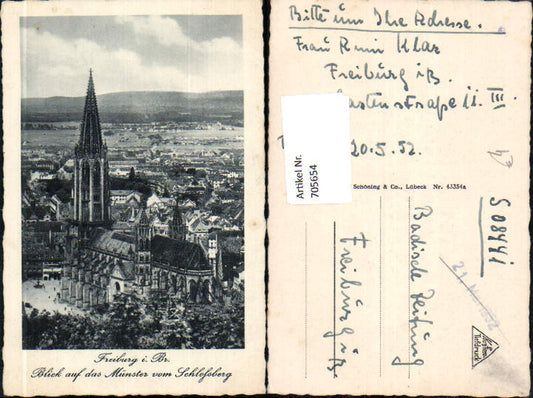 Freiburg i. Br.
Blick auf das Münster vom Schloßberg
Bitte um Ihre Adresse.
Frau Klar
Freiburg i/B.
III
20.5.52.
Artikel Nr.
705654
Schöning & Co., Lübeck Nr. 41354a
Badische Zeitung
Freiburg i/B.
S0844i